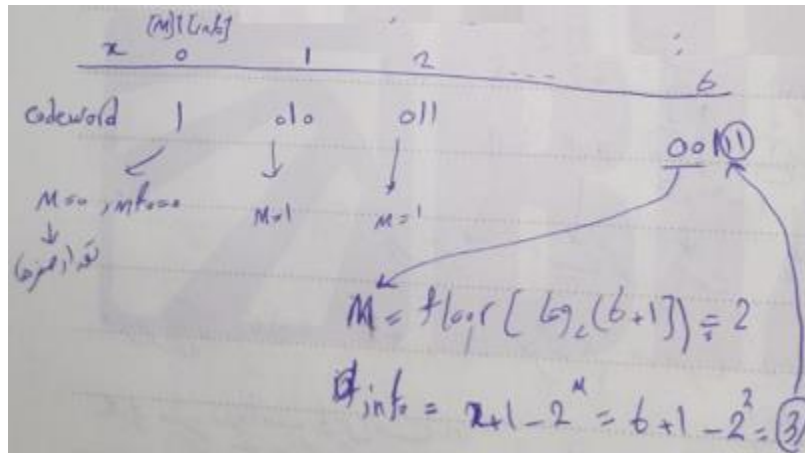 [M] 1 [info]
x 0 1 2 ---- 6
codeword 1 010 011 00111
M=0, info=0 M=1 M=1
تعداد صفرها
M = floor[log₂(6+1)] = 2
info = x+1-2^M = 6+1-2² = 3